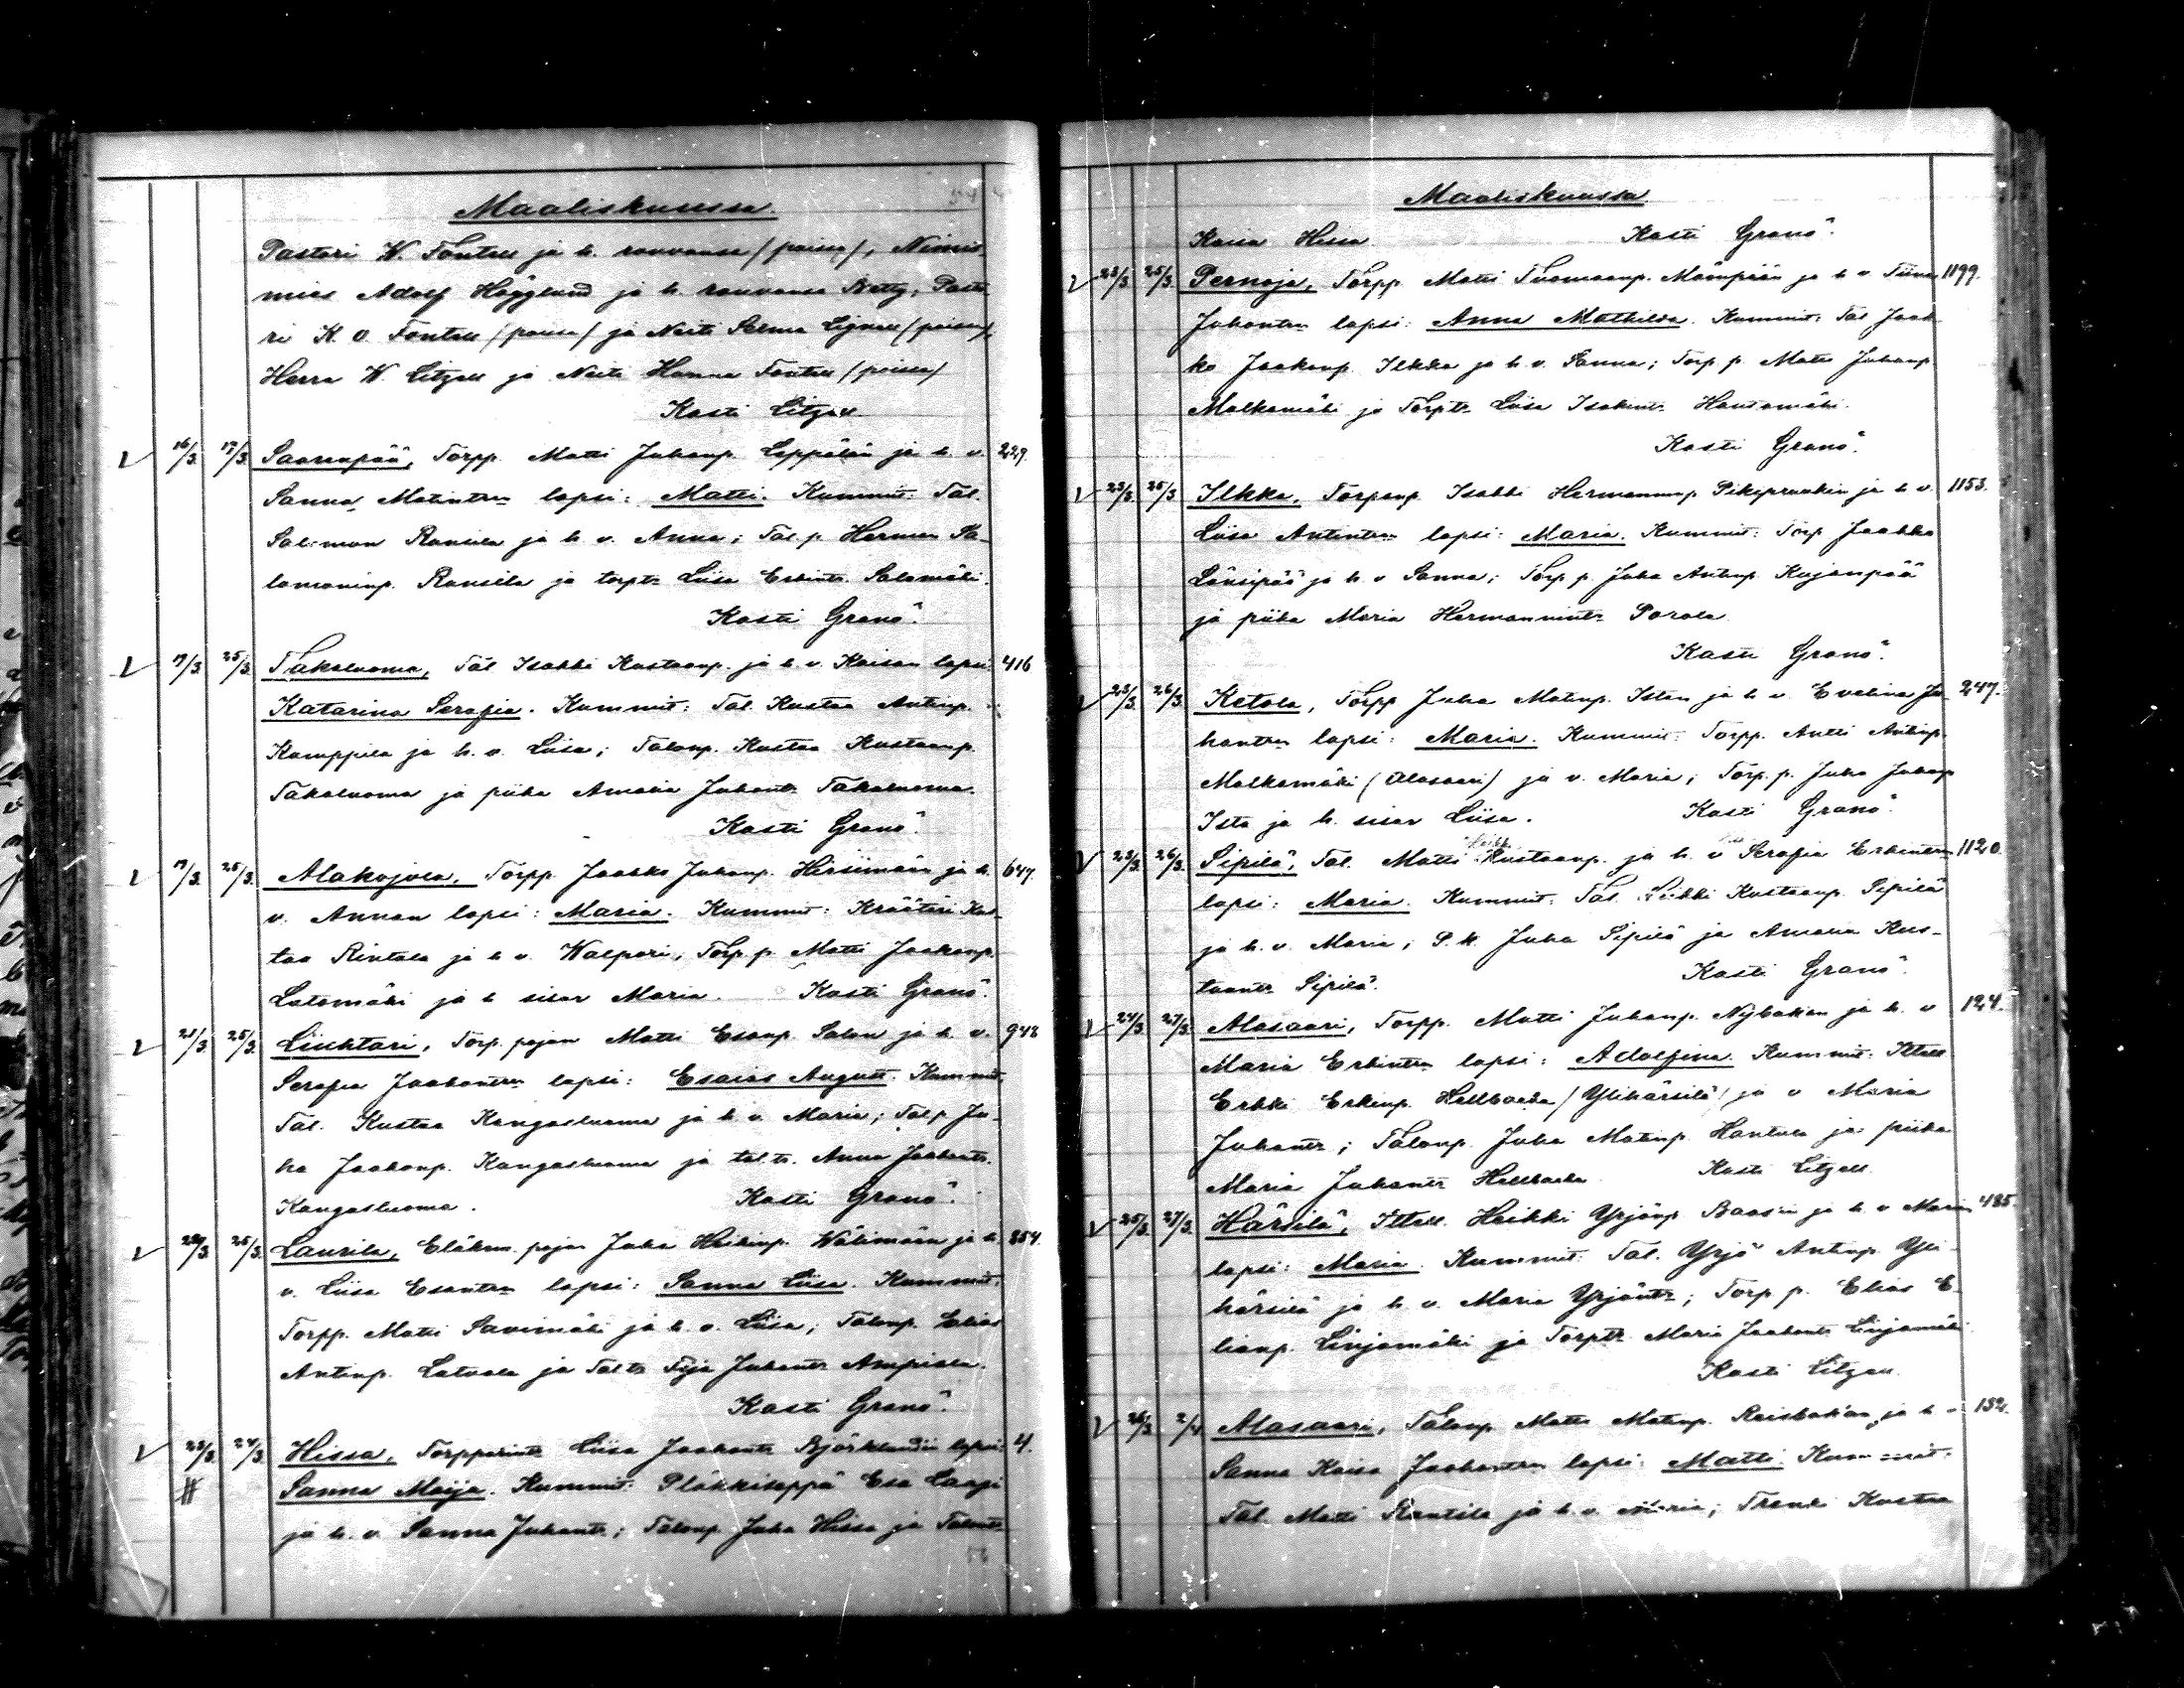 Maaliskuussa.
Pastori W. Fontell ja h. rouvansa (poissa), Nimis-
mies Adolf Hägglund ja h. rouvansa Betty, Pasto-
ri K. O. Fontell (poissa) ja Neiti Selma Lignell (poissa),
Herra W. Litzell ja Neiti Hanna Fontell (poissa)
Kasti Litzell
16/3. 17/3. Saarenpää, Torpp. Matti Juhanp. Leppälän ja h. v. 229.
Sanna Matintren lapsi: Matti. Kummit: Tal.
Salomon Ransila ja h. v. Anna; Tal.p. Herman Sa-
lomoninp. Ransila ja torptr. Liisa Erkintr. Salomäki.
Kasti Granö.
19/3 25/3 Takaluoma, Tal. Isakki Kustaanp. ja h. v. Kaisan lapsi: 416
Katarina Serafia. Kummit: Tal. Kustaa Antinp.
Kamppila ja h. v. Liisa; Talonp. Kustaa Kustaanp.
Takaluoma ja piika Amalia Juhantr. Takaluoma.
Kasti Granö.
19/3. 25/3. Alakojola, Torpp. Jaakko Juhanp. Hirsimäen ja h. 647.
v. Annan lapsi: Maria. Kummit: Kräätäri Kus-
taa Rintala ja h. v. Walpori; Torp.p. Matti Jaakonp.
Latomäki ja h. sisar Maria. Kasti Granö.
21/3. 25/3. Liuhtari, Torp. pojan Matti Esanp. Salon ja h. v. 948
Serafia Jaakontren lapsi: Esaias August. Kummit:
Tal. Kustaa Kangasluoma ja h. v. Maria; Tal.p. Ju-
ha Jaakonp. Kangasluoma ja tal.tr. Anna Jaakontr.
Kangasluoma. Kasti Granö.
25/3. Laurila, Eläkm. pojan Juha Heikinp. Wälimäen ja h. 854.
v. Liisa Esantren lapsi: Sanna Liisa. Kummit:
Torpp. Matti Savimäki ja h. v. Liisa; Talonp. Elias
Antinp. Latvala ja Tal.tr. Fija Juhantr. Ampiala.
Kasti Granö.
22/3. 24/3. Hissa, Torpparintr. Liisa Jaakontr. Björklundin lapsi: 4.
# Sanna Maija. Kummit: Pläkkiseppä Esa Laagi
ja h. v. Sanna Juhantr.; Talonp. Juha Hissa ja Talontr.
Maaliskuussa.
Kaisa Hissa. Kasti Granö.
23/3. 25/3. Pernaja, Torpp. Matti Tuomaanp. Mämpään ja h. v. Tiina 1199.
Juhontren lapsi: Anna Mathilda. Kummit: Tal. Jaak-
ko Jaakonp. Ilkka ja h. v. Sanna; Torp.p. Matti Juhanp.
Malkamäki ja Torptr. Liisa Isakintr. Hautamäki.
Kasti Granö.
23/3. 25/3. Ilkka, Torpanp. Isakki Hermanninp. Pikipruukin ja h. v. 1153.
Liisa Antintren lapsi: Maria. Kummit: Torp. Jaakko
Länsipää ja h. v. Sanna; Torp.p. Juha Antinp. Kujanpää
ja piika Maria Hermannintr. Porola.
Kasti Granö.
23/3. 26/3. Ketola, Torpp. Juha Matinp. Iston ja h. v. Evelina Ju- 247.
hontren lapsi: Maria. Kummit: Torpp. Antti Antinp.
Malkamäki (Alasaari) ja v. Maria; Torp.p. Juha Juhanp.
Isto ja h. sisar Liisa. Kasti Granö.
23/3. 26/3. Sipilä, Tal. Matti Kustaanp. ja h. v. Serafia Erkintren 1120.
lapsi: Maria. Kummit: Tal. Heikki Kustaanp. Sipilä
ja h. v. Maria; P.k. Juha Sipilä ja Amalia Kus-
taantr. Sipilä. Kasti Granö.
24/3. 27/3. Alasaari, Torpp. Matti Juhanp. Nybakan ja h. v. 124.
Maria Erkintren lapsi: Adolfina. Kummit: Itsell.
Erkki Erkinp. Hellbacka (Ylihärsilä) ja v. Maria
Juhantr.; Talonp. Juha Matinp. Hantula ja piika
Maria Juhantr. Hellbacka. Kasti Litzell.
25/3. 27/3. Härsilä, Itsell. Heikki Yrjönp. Baasin ja h. v. Marian 485.
lapsi: Maria. Kummit: Tal. Yrjö Antinp. Yli-
härsilä ja h. v. Maria Yrjöntr.; Torp.p. Elias E-
lianp. Linjamäki ja Torptr. Maria Jaakontr. Linjamäki
Kasti Litzell.
26/3. 2/4 Alasaari, Talonp. Matti Matinp. Raiskakan ja h. v. 152.
Sanna Kaisa Jaakontren lapsi: Matti. Kummit:
Tal. Matti Rantila ja h. v. Maria; Trenki Kustaa